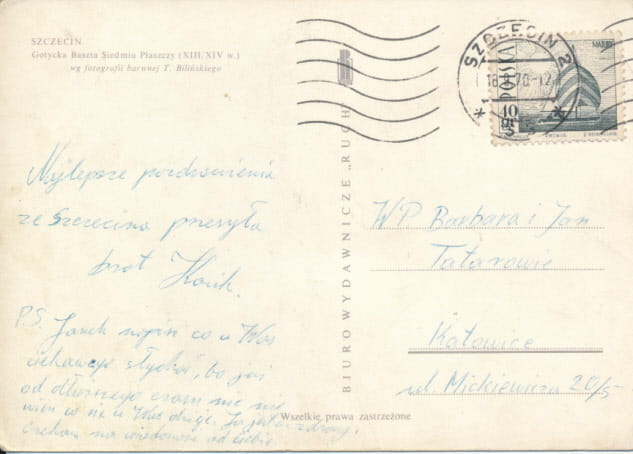 SZCZECIN
Gotycka Baszta Siedmiu Płaszczy (XIII/XIV w.)
wg fotografii barwnej T. Bilińskiego
Najlepsze pozdrowienia
ze Szczecina przesyła
brat
P.S. Janek napisz co u Was
ciekawego słychać, bo już
od dłuższego czasu nic nie
wiem co się u Was dzieje. Ja jestem zdrowy.
Czekam na wiadomość od Ciebie
BIURO WYDAWNICZE „RUCH"
Wszelkie prawa zastrzeżone
SZCZECIN 2
POLSKA
10
GR
WP Barbara i Jan
Tatarowie
Katowice
ul. Mickiewicza 20/5